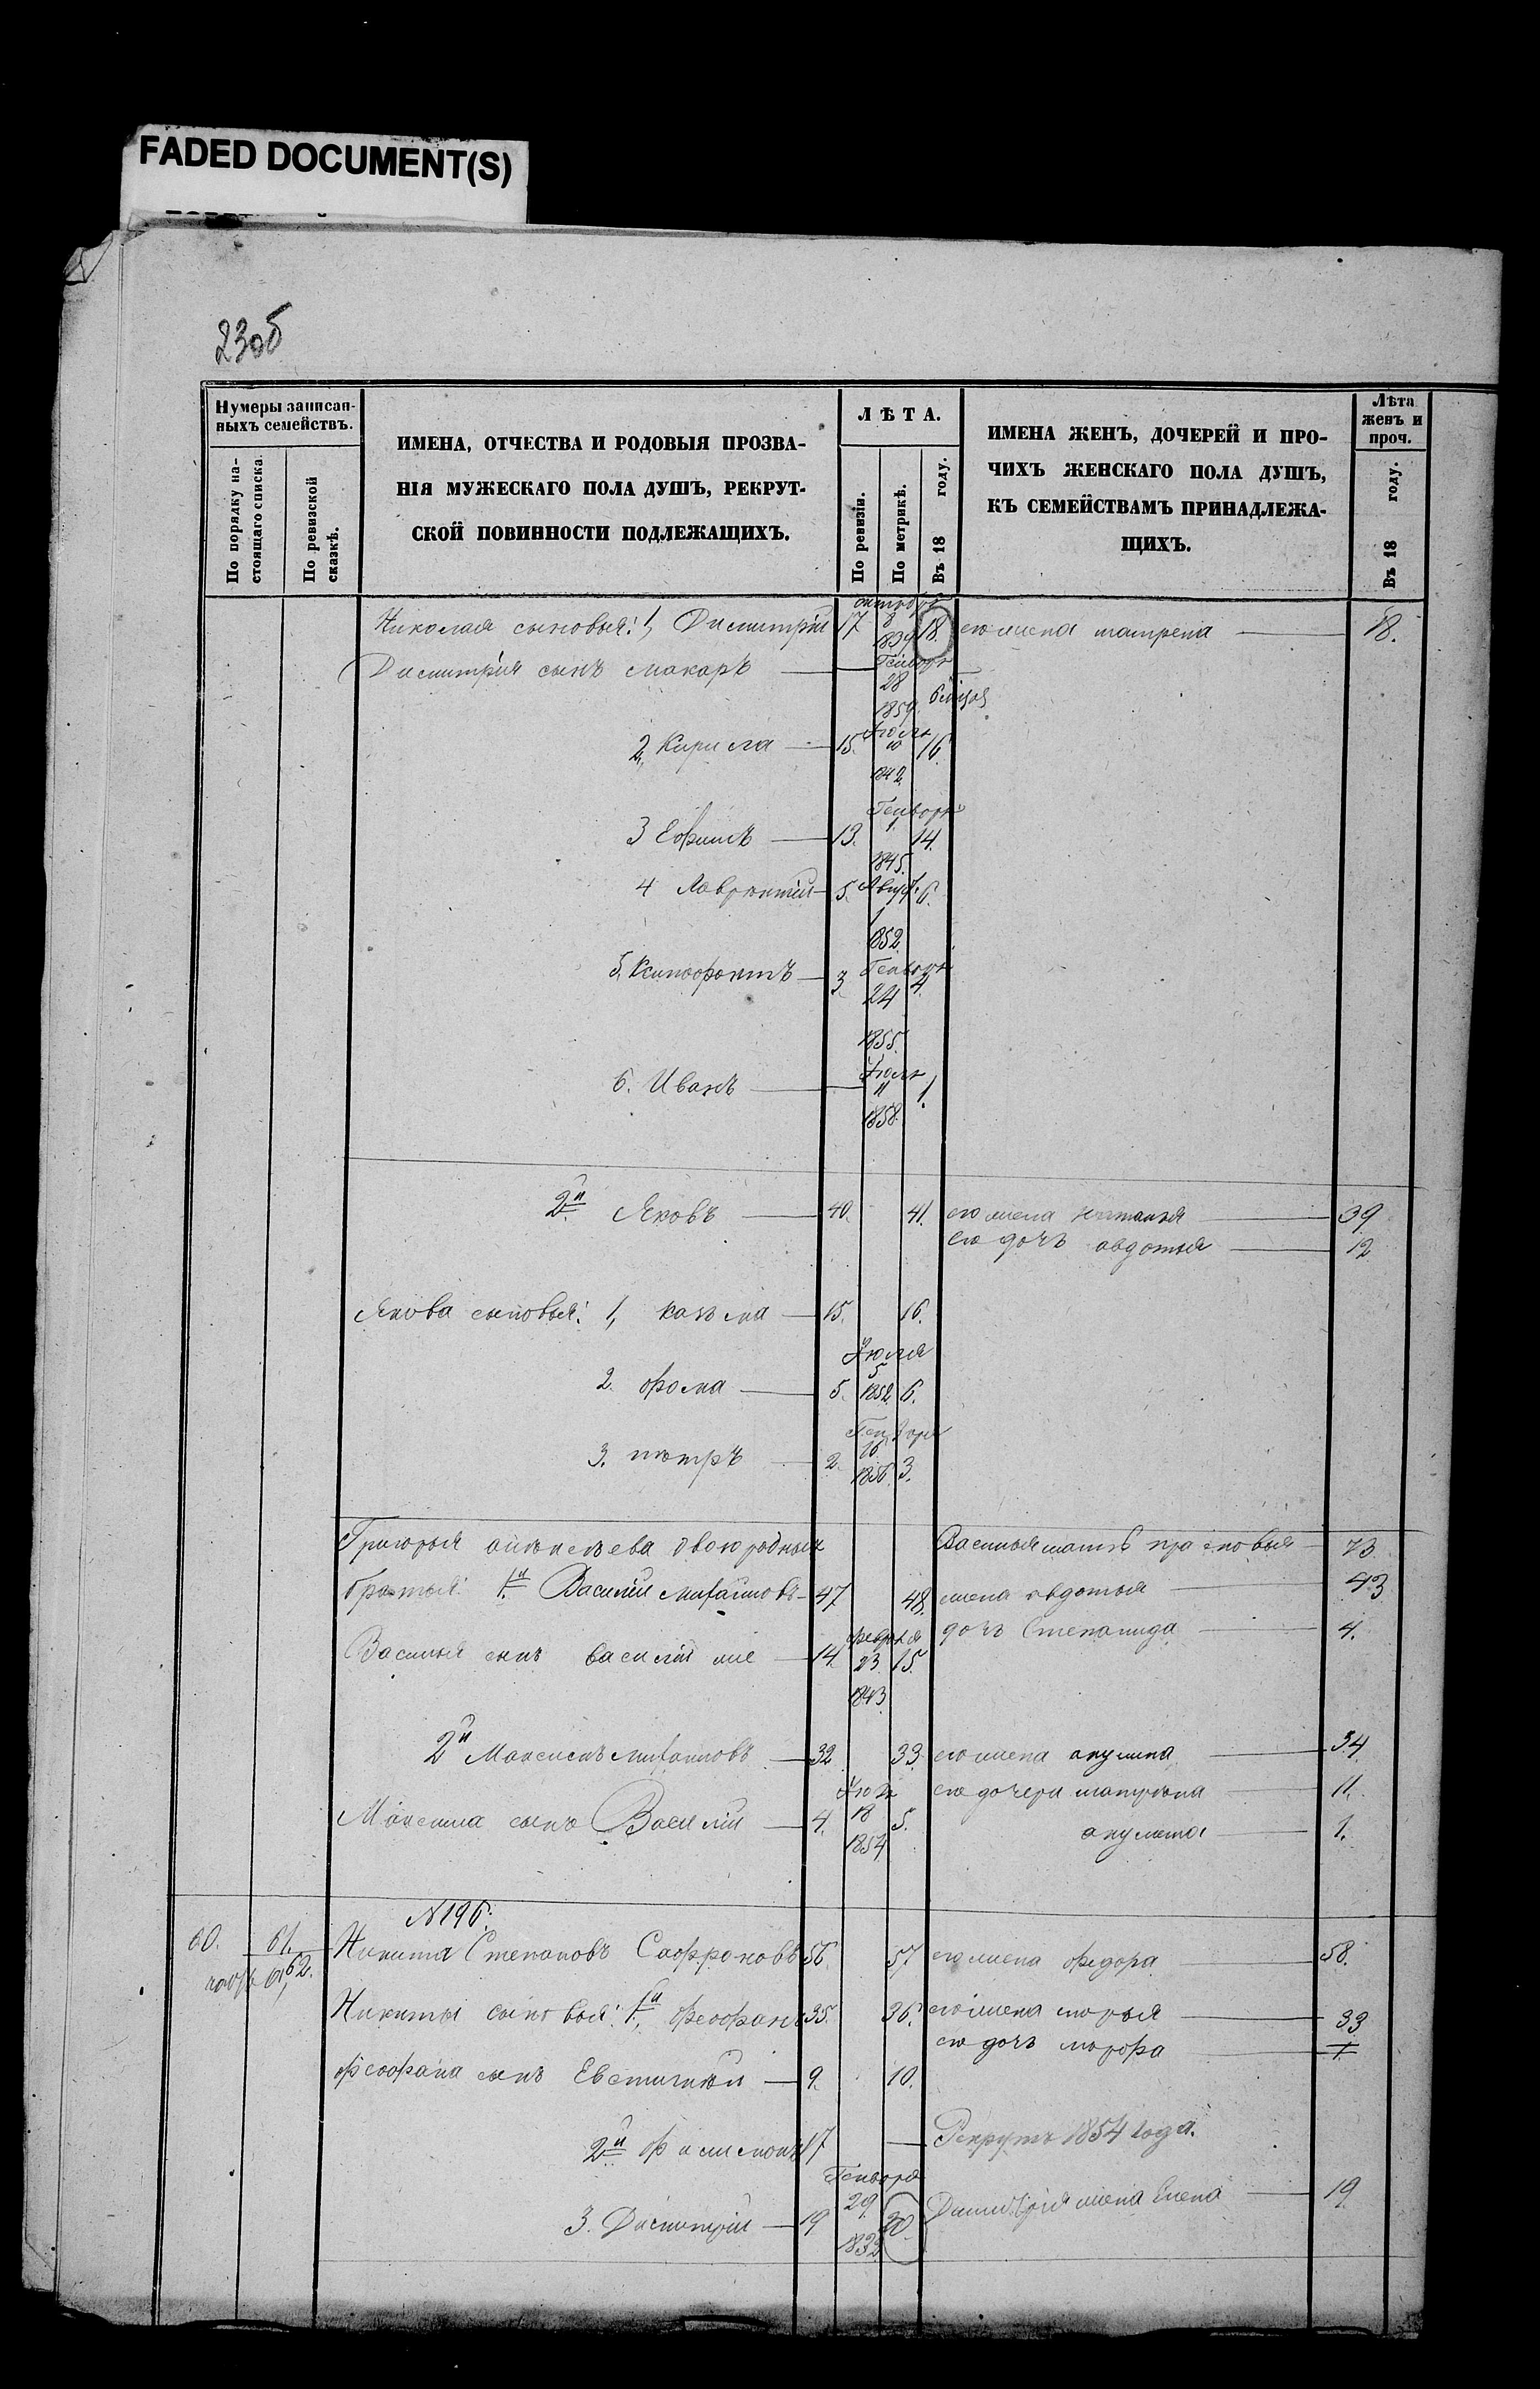 FADED DOCUMENT(S)
23об
Нумеры записан-
ныхъ семействъ.
По порядку на-
стоящаго списка.
По ревизской
сказкѣ.
ИМЕНА, ОТЧЕСТВА И РОДОВЫЯ ПРОЗВА-
НІЯ МУЖЕСКАГО ПОЛА ДУШЪ, РЕКРУТ-
СКОЙ ПОВИННОСТИ ПОДЛЕЖАЩИХЪ.
ЛѢТА.
По ревизіи.
По метрикѣ.
Въ 18 году.
ИМЕНА ЖЕНЪ, ДОЧЕРЕЙ И ПРО-
ЧИХЪ ЖЕНСКАГО ПОЛА ДУШЪ,
КЪ СЕМЕЙСТВАМЪ ПРИНАДЛЕЖА-
ЩИХЪ.
Лѣта
женъ и
проч.
Въ 18 году.
Николая сыновья: 1, Дмитрій 17 октября 8 1839 18. его жена матрена 18.
Дмитрія сынъ макаръ Генваря 28 1859
2, Кирила 15. 10 1842 16.
3 Ефимъ 13. Генваря 1 1845. 14.
4 Лаврентій 5. Авгус. 1 1852. 6.
5, Ксенофонтъ 3 Генваря 24 1855. 4.
6. Иванъ 11 1858. 1.
2й Яковъ 40. 41. его жена наталья 39
его дочь авдотья 12
Якова сыновья: 1, козьма 15. 16.
2. фома 5. Июля 5 1852 6.
3. петръ 2. Генваря 16 1856. 3.
Григорья двоюродныя Василья мать прасковья 73.
братья: 1й Василій михаиловъ 47 48. жена авдотья 43
Василья сынъ василій же 14. февраля 23 1843 15. дочь Степанида 4.
2й Максимъ михаиловъ 32 33. его жена акулина 34.
его дочери матрена 11.
Максима сынъ Василій 4. 18 1854 5. акулина 1.
N 196.
60. 61. Никита Степановъ Сафроновъ 56. 57 его жена федора 58.
62.
Никиты сыновья: 1й феофанъ 35. 36. его жена марья 33
его дочь марфа 1.
феофана сынъ Евстигней 9. 10.
2й филимонъ 17 Рекрутъ 1854 года.
3. Дмитрій 19 Генваря 29. 20. Дмитрія жена Елена 19